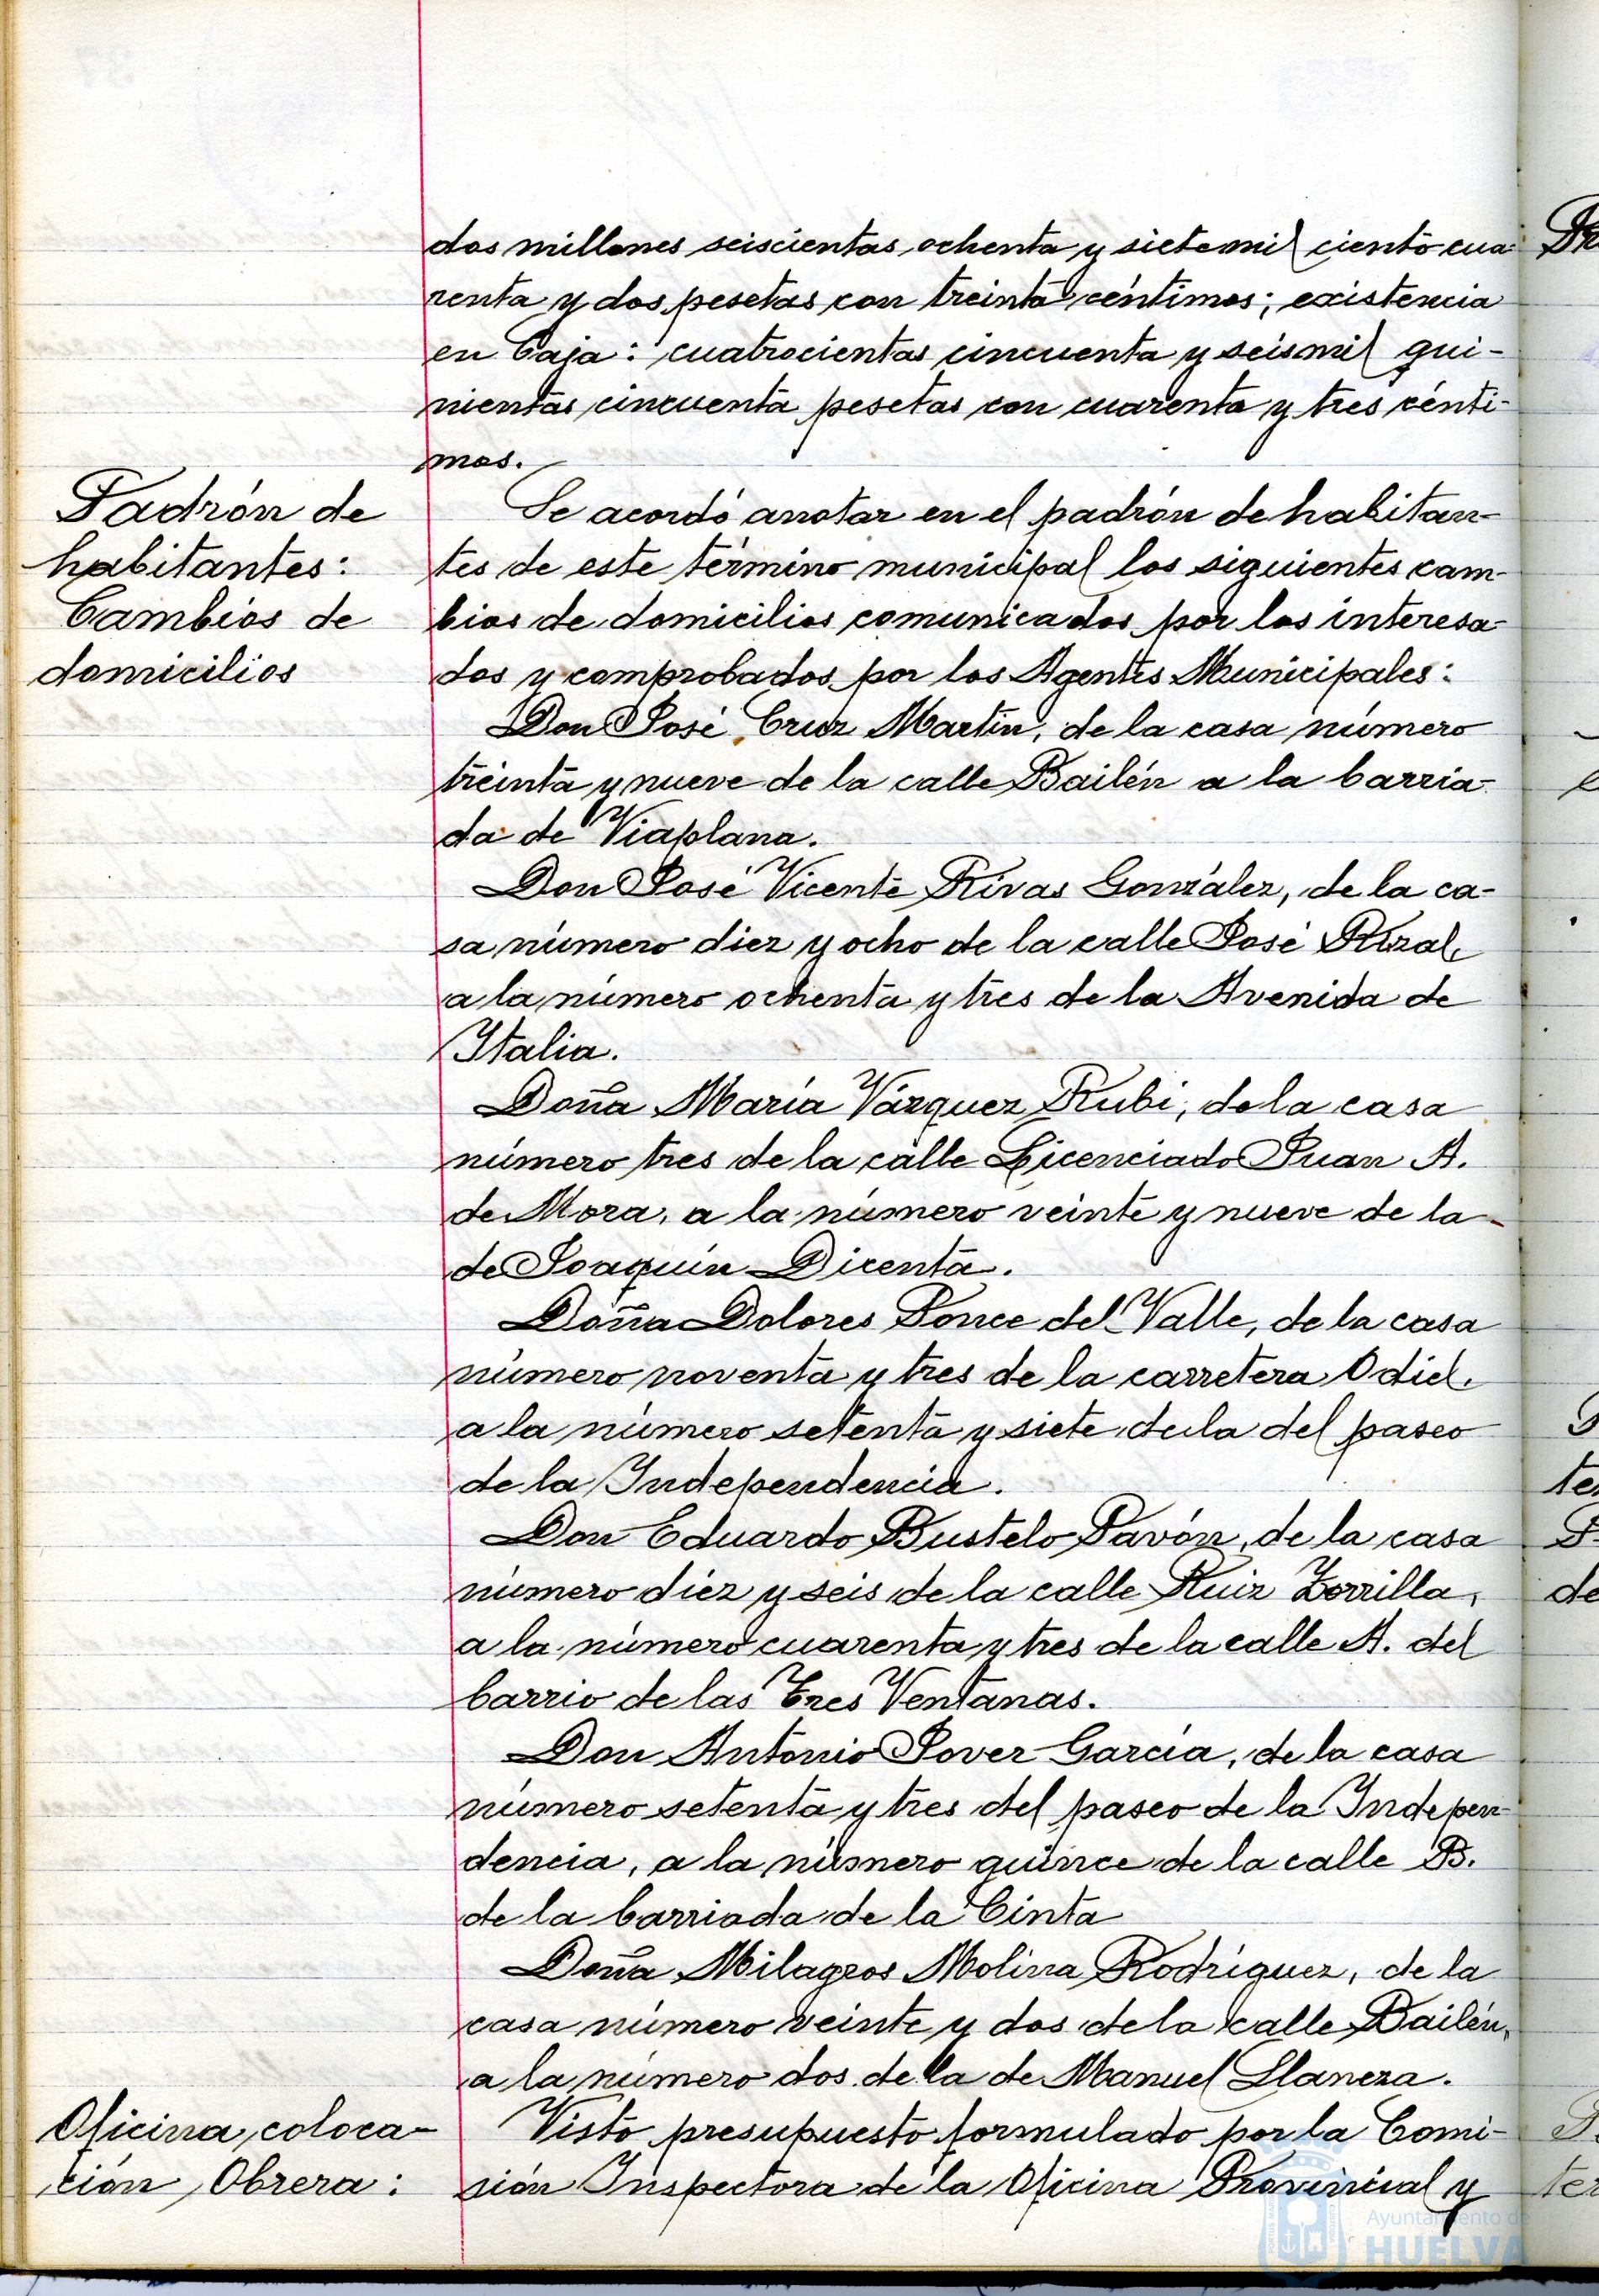 dos millones seiscientas ochenta y siete mil ciento cua-
renta y dos pesetas con treinta céntimos; existencia
en Caja: cuatrocientas cincuenta y seis mil qui-
nientas cincuenta pesetas con cuarenta y tres cénti-
mos.
Padrón de
habitantes:
Cambios de
domicilios
Se acordó anotar en el padrón de habitan-
tes de este término municipal los siguientes cam-
bios de domicilios comunicados por los interesa-
dos y comprobados por los Agentes Municipales:
Don José Cruz Martín, de la casa número
treinta y nueve de la calle Bailén a la barria-
da de Viaplana.
Don José Vicente Rivas González, de la ca-
sa número diez y ocho de la calle José Rizal,
a la número ochenta y tres de la Avenida de
Italia.
Doña María Vázquez Rubi, de la casa
número tres de la calle Licenciado Juan A.
de Mora, a la número veinte y nueve de la
de Joaquín Dicenta.
Doña Dolores Ponce del Valle, de la casa
número noventa y tres de la carretera Odiel,
a la número setenta y siete de la del paseo
de la Independencia.
Don Eduardo Bustelo Pavón, de la casa
número diez y seis de la calle Ruiz Zorrilla,
a la número cuarenta y tres de la calle A. del
barrio de las Tres Ventanas.
Don Antonio Jover García, de la casa
número setenta y tres del paseo de la Indepen-
dencia, a la número quince de la calle B.
de la barriada de la Cinta
Doña Milagros Molina Rodríguez, de la
casa número veinte y dos de la calle Bailén,
a la número dos de la de Manuel Llaneza.
Oficina, coloca-
ción, Obrera:
Visto presupuesto formulado por la Comi-
sión Inspectora de la Oficina Provincial y
Ayuntamiento de
HUELVA